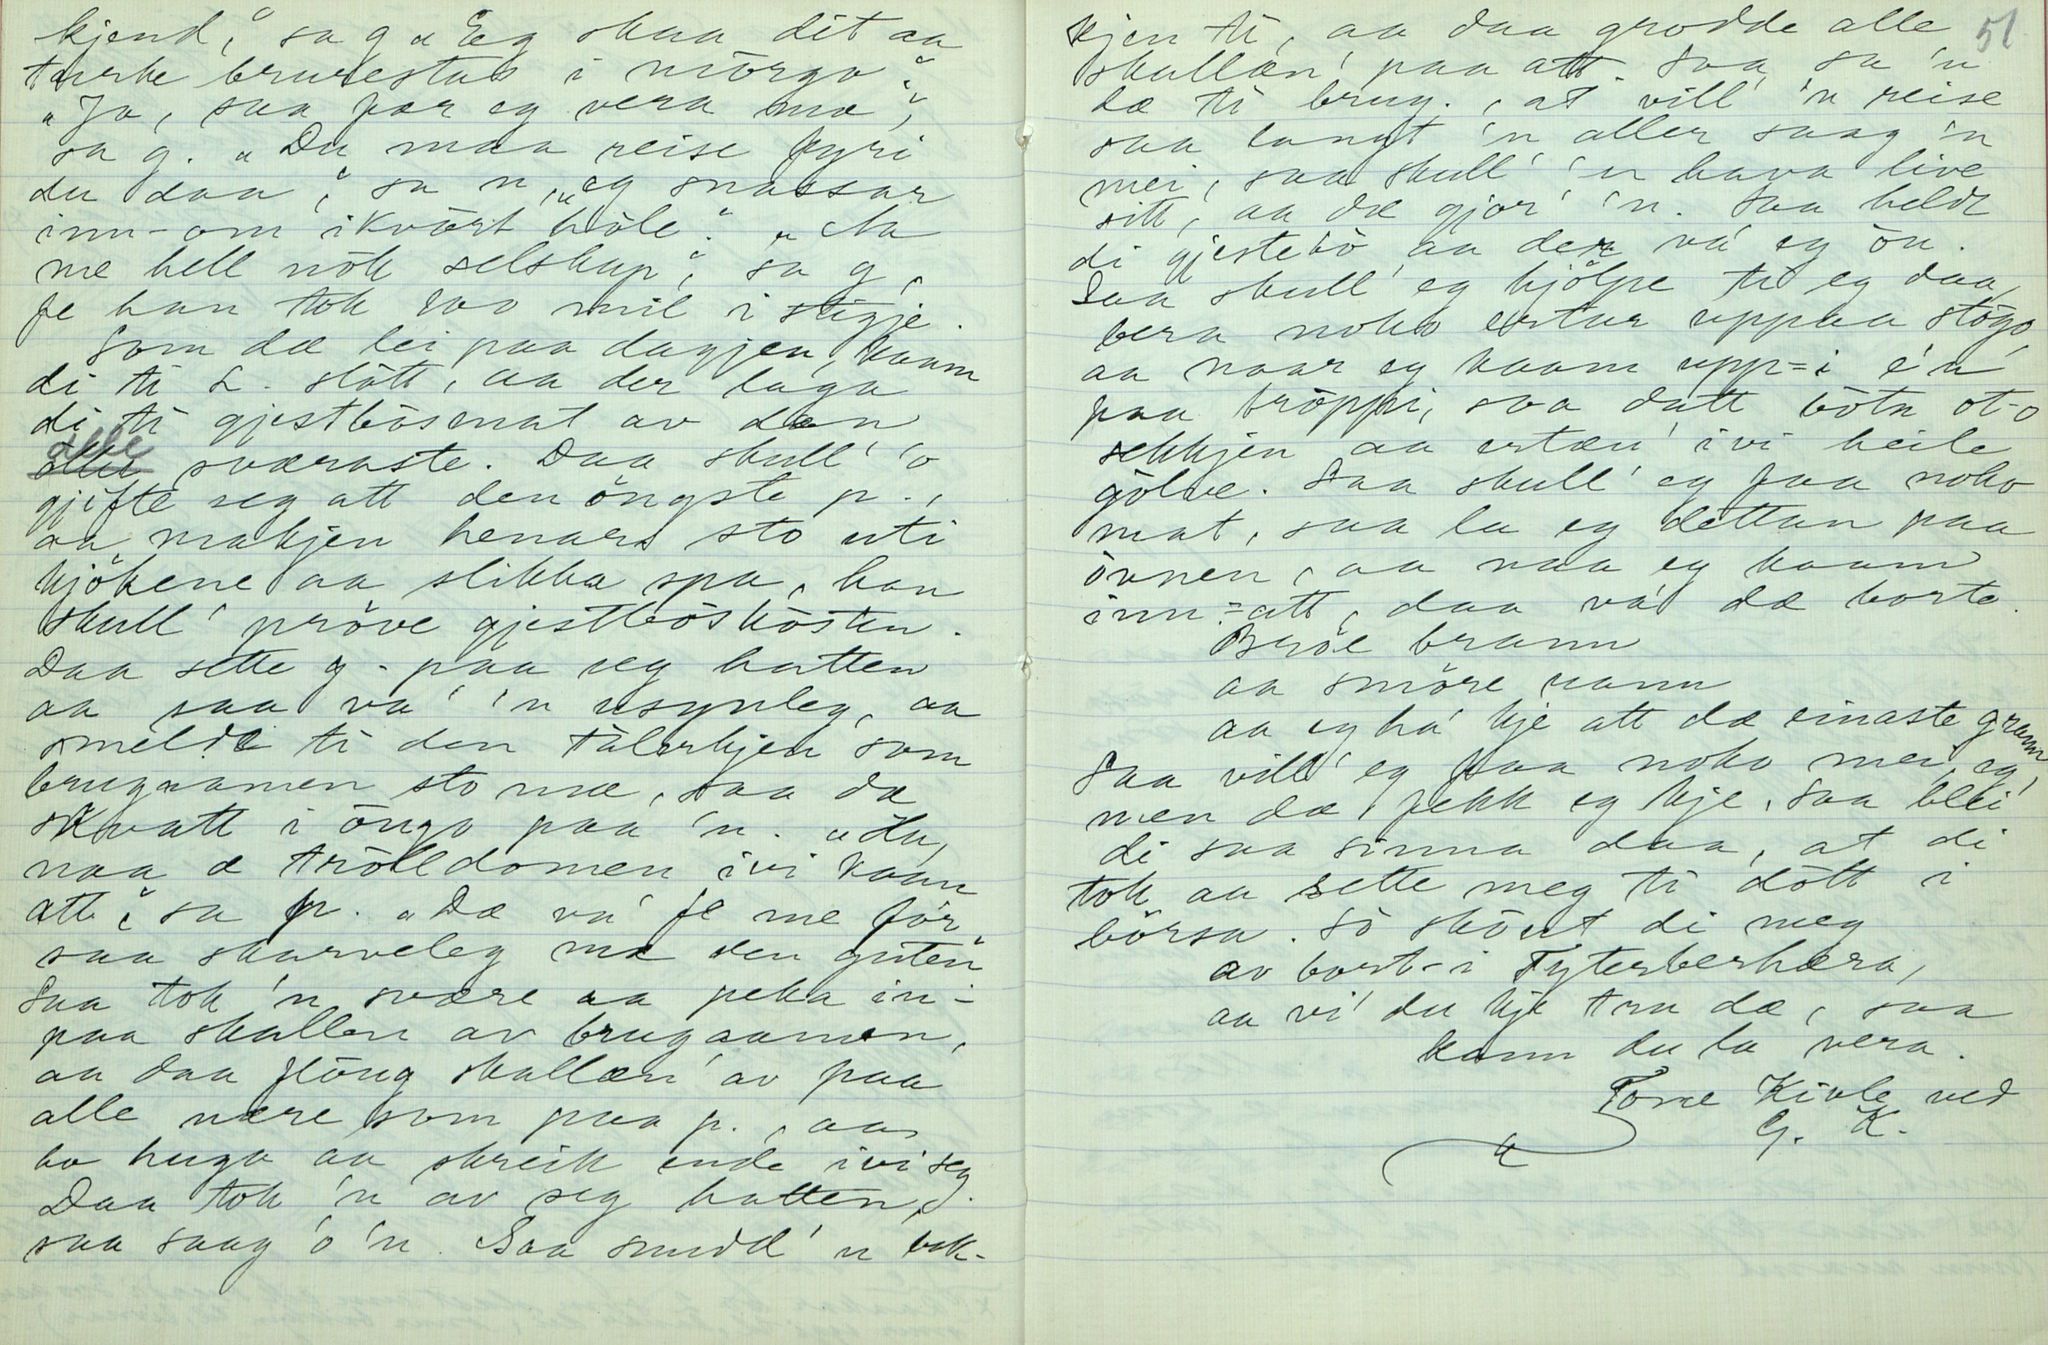 kjend," sa g „Eg skaa dit aa
turke brurestas i mörgo".
„Ja, saa faar eg vera mæ",
sa g. „Du maa reise fyri
du daa", sa 'n, „eg snassar
inn-om ikvart höle." „Aa
me hell nök selskap", sa g,
fe han tok two mil i stigje.
Som dæ lei paa dagjen, kaam
di ti L. slött, aa der laga
di ti gjestbösmat av den
alle sværaste. Daa skull' 'o
gjifte seg att den öngste p.,
aa makjen henars sto uti
kjökene aa slikka spa, han
skull' pröve gjestböskösten.
Daa sette g. paa seg hatten
aa saa va' 'n usynleg, aa
smelde ti den tálerkjen som
brugaamen sto mæ, saa dæ
skvatt i öngo paa 'n. „Hu,
naa æ trölldomen ivi kaam
att", sa p. „Dæ va' fe me för
saa skarveleg mæ den guten"
Saa tok 'n svære aa peka in-
paa skallen av brugaamen,
aa daa flöug skallæn' av paa
alle nære som paa p., aa
ho huga aa skreik ende ivi seg.
Daa tok 'n av seg hatten,
saa saag 'o 'n. Saa snudd' 'n bok-
51
kjen ti, aa daa grodde alle
skallæn' paa att. Saa sa 'n
dæ ti brug., at vill' 'n reise
saa langt 'n aller saag 'n
mei, saa skull' 'n hava live
sitt, aa dæ gjor' 'n. Saa heldt
di gjestebö aa der va' eg ön.
Saa skull' eg hjölpe ti eg daa,
bera noko ertar uppaa stögo,
aa naar eg kaam upp-i é'n
paa tröppi, saa datt bötn ot-o
sekkjen aa ertæn' ivi heile
gölve. Saa skull' eg faa noko
mat, saa la eg dettan paa
övnen, aa naa eg kaam
inn-att, daa va' dæ borte.
Bröe brann
aa smöre rann
aa eg há' kje att dæ einaste grann
Saa vill' eg faa noko mei, eg,
men dæ fekk eg kje. Saa blei
di saa sinna daa, at di
tok aa sette meg ti dött i
börsa. So sköut di meg
av bort-i Tyterberhæra,
aa vi' du kje tru dæ, saa
kann du la vera.
Tone Kivle ved
G. K.